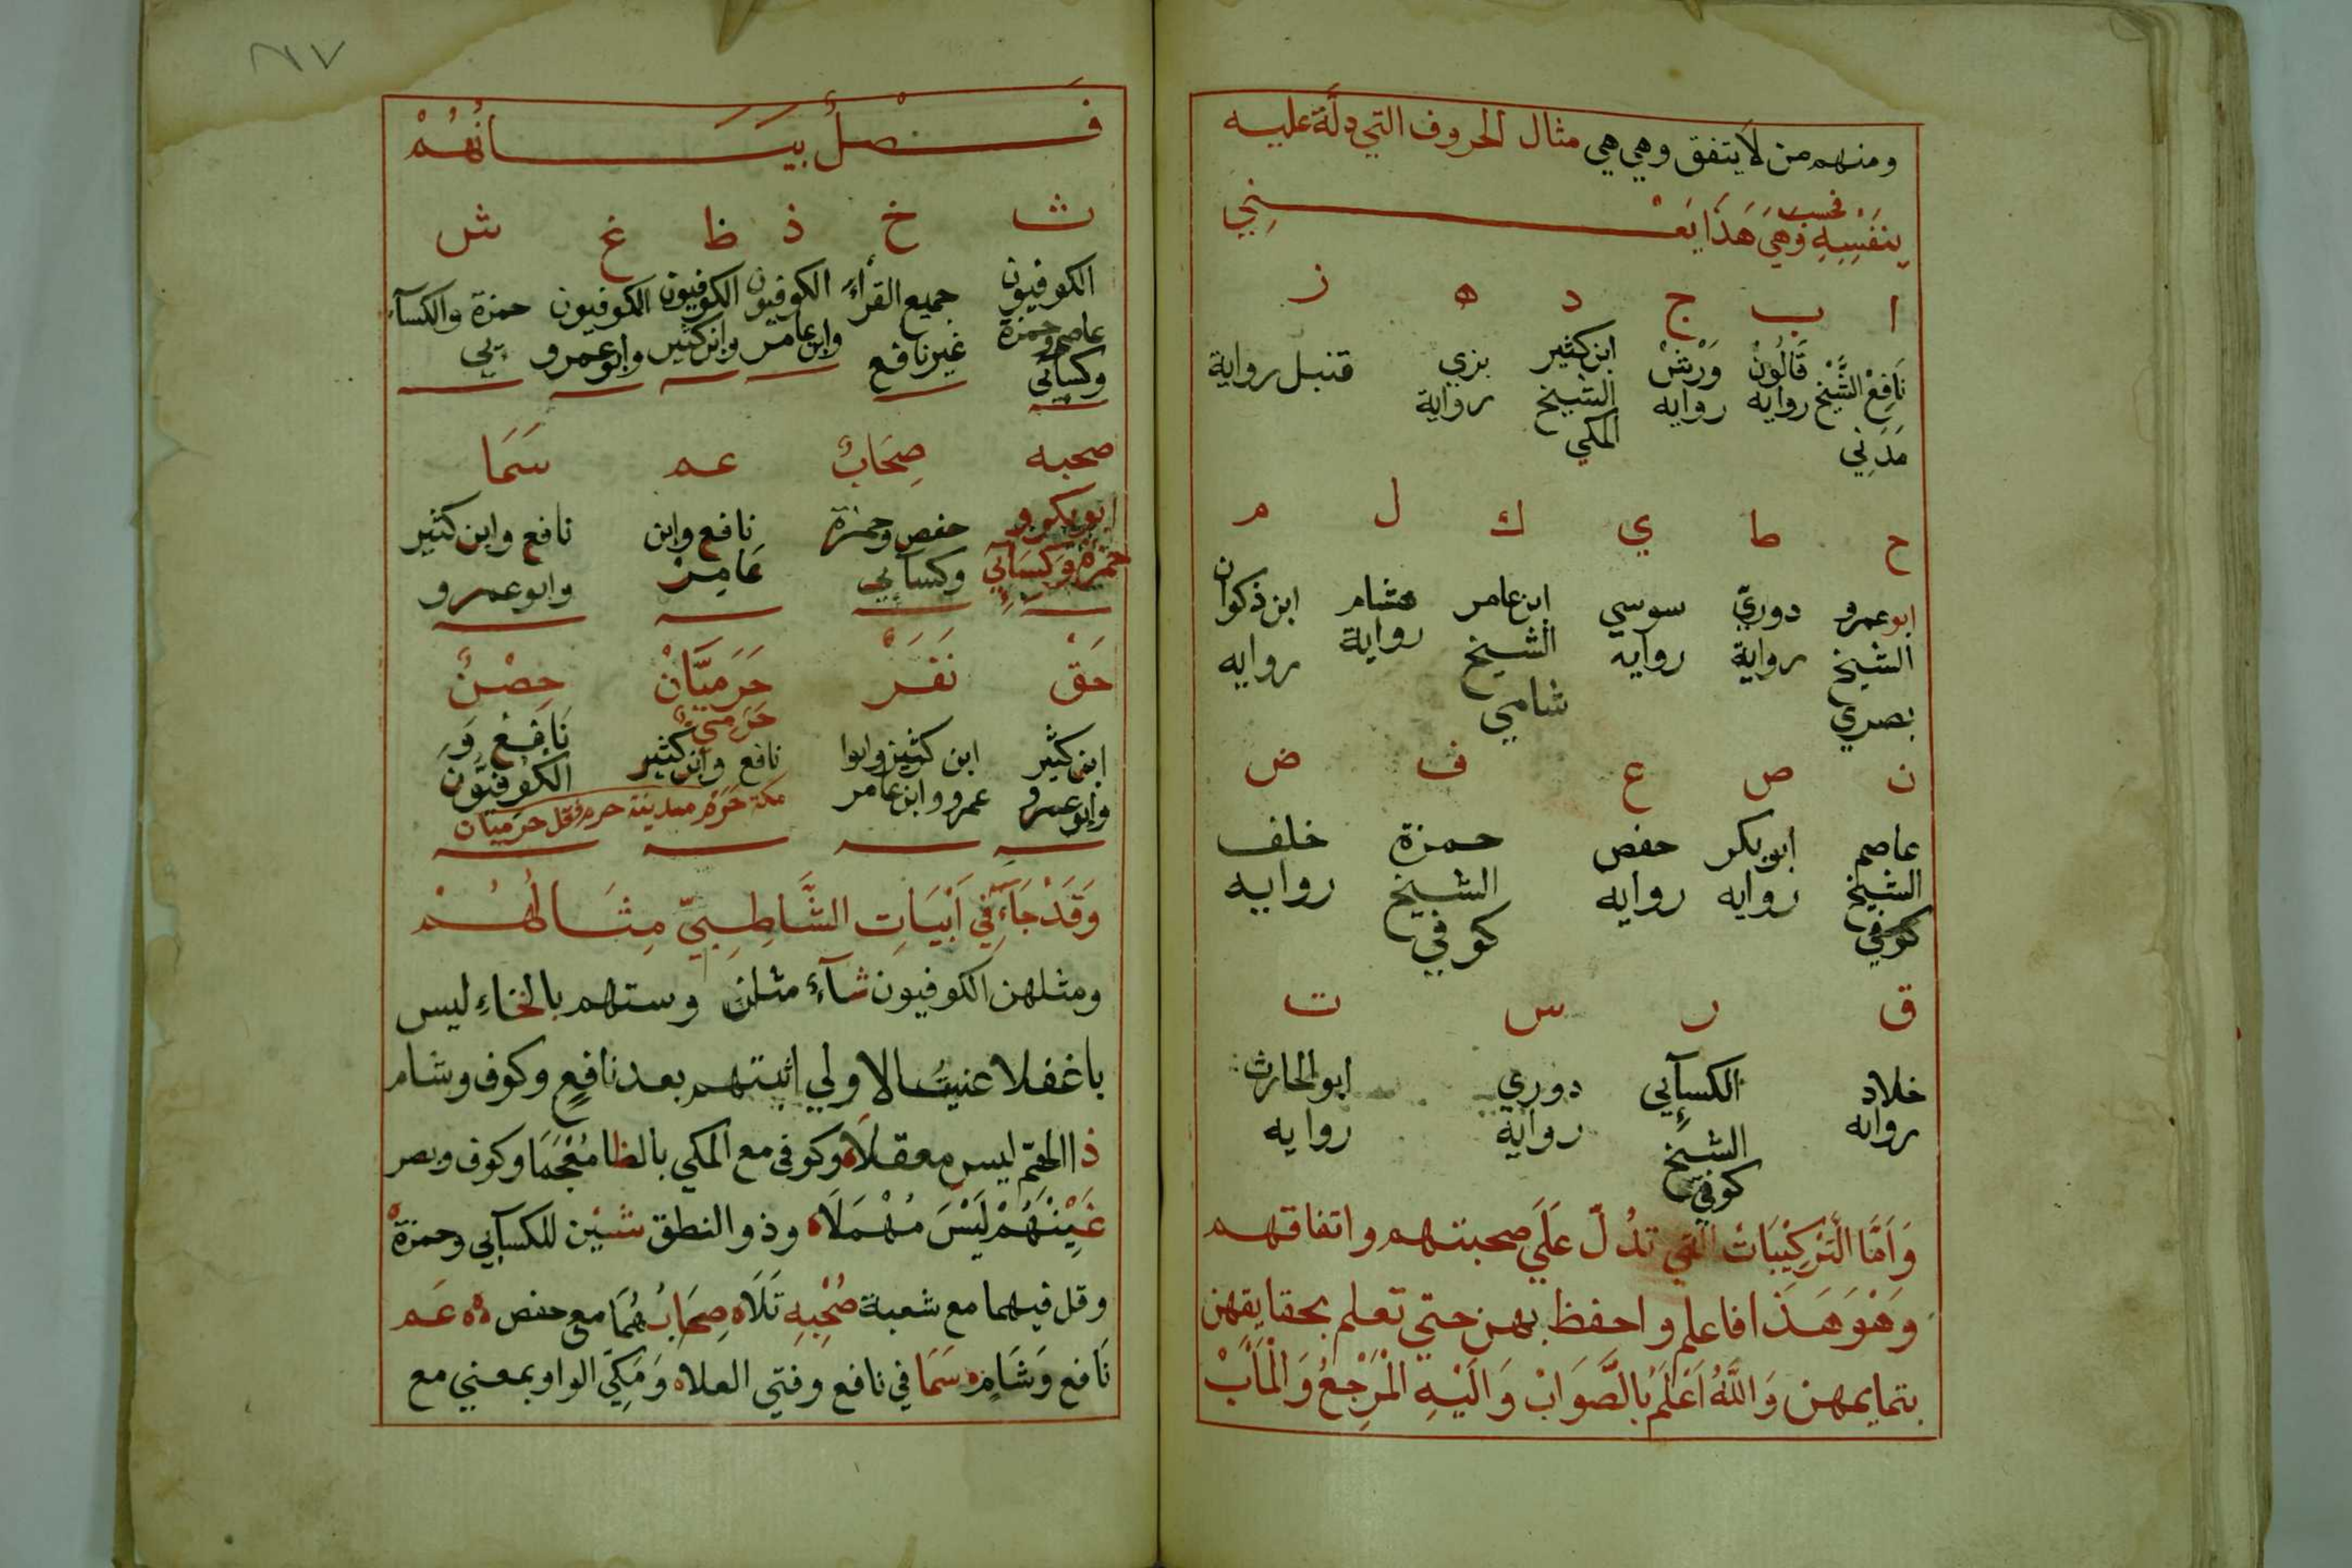 ومنهم من لا يتفق وهي هي مثال الحروف التي دلّة عليه
بِنَفْسِهِ فحسب وَهِيَ هَذَا يَعْنِي
ا ب ج د ه ز
نَافِعْ الشَّيْخ مَدَنِي
قَالُونْ روايه
وَرْشْ روايه
ابن كثير الشيخ المكي
بزي رواية
قنبل رواية
ح ط ي ك ل م
ابو عمرو الشيخ بصري
دوريّ رواية
سوسي روايه
ابن عامر الشيخ شامي
هشام رواية
ابن ذكوان روايه
ن ص ع ف ض
عاصم الشيخ كوفي
ابو بكر روايه
حفص روايه
حمزة الشيخ كوفي
خلف روايه
ق ر س ت
خلاد روايه
الكسآئي الشيخ كوفي
دوري رواية
ابو الحارث روايه
وَاَمَّا الْتَرْكِيْبَاتُ التي تدُلّ عَلَي صحبتهم واتفاقهم
وَهْوَ هَذَا فاعلم واحفظ بهن حتي تعلم بحقايقهن
بتمايمهن وَاللَّهُ اَعْلَمُ بِالصَّوَابْ وَالَيْهِ الْمَرْجِعُ وَالْمَاَبْ
٨٧
فَصْلُ بَيَانُهُمْ
ث خ ذ ظ غ ش
الكوفيون عاصم وحمزة وكسآئي
جميع القرآءَ غير نافع
الكوفيون وابن عامر
الكوفيون وابن كثير
الكوفيون وابو عمرو
حمزة والكسآ ئي
صحبه صِحَابٌ عم سَمَا
ابو بكر و حمزة وَكِسَآئي
حفص وحمزة وكسآئي
نافع وابن عَامِر
نافع وابن كثير وابو عمرو
حَقْ نَفَرْ حَرَمِيَّانْ حِصْنٌ
حَرَمِيٌّ
ابن كثير وابو عمرو
ابن كثير وابوا عمرو وابن عامر
نافع وابن كثير
نَافِعْ وَ الكُوفِيّون
مكة حَرَم مدينة حرم فقل حرميان
وَقَدْ جَآءَ فِي اَبْيَاتِ الشَّاطِبِيّ مِثَالُهُمْ
ومثلهن الكوفيون شآءٌ مثلن وستهم بالخاءِ ليس
با غفلا عنيتُ الاولي اثبتهم بعد نافعٍ وكوف وشام
ذا الهتم ليس معقلَا وكوفي مع المكي بالظا مُعْجَمَا وكوف وبصر
غَيْنَهُمْ لَيْسَ مُهْمَلَاه وذو النطق شيْن للكسآئي وحمزةْ
وقل فيهما مع شعبة صُحْبِهِ تَلَاه صِحَابُ هُمَا مع حفص ه ه عَم
نَافع وَشَامٍ ه سَمَا في نافع وفتي العلاه وَمَكِّي الواو بمعني مع